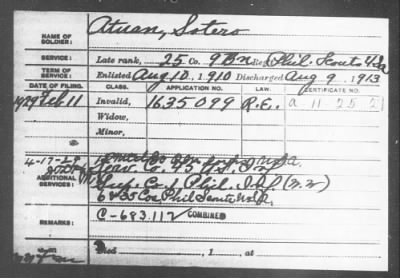 Atuan, Sotero
NAME OF SOLDIER:
SERVICE: Late rank, 25 Co. 9 Bn Reg't Phil. Scouts
TERM OF SERVICE: Enlisted Aug 10. 1910 Discharged Aug 9 1913
DATE OF FILING. CLASS. APPLICATION NO. LAW. CERTIFICATE NO.
1929 Feb 11 Invalid, 1635099 R.E. a 11 25 2
Widow,
Minor,
4-17-29
ADDITIONAL SERVICES: Serv. Co. 45
Sup. Co. 1 Phil. Inf.
6 & 35 Cos Phil Scouts
REMARKS: C-683.112 COMBINED
Died , 1 , at